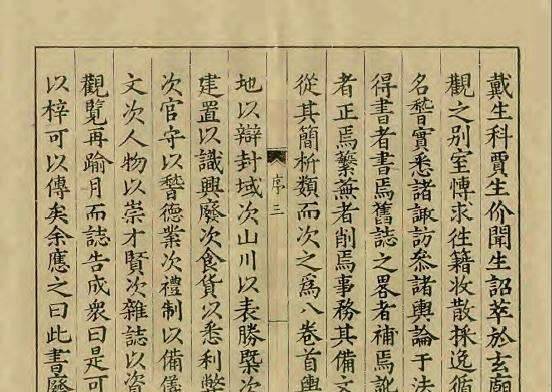 戴生科賈生价聞生詔萃於玄廟
觀之别室慱求徃籍收散採逸循
名瞀實悉諸諏訪叅諸輿論于法
得書者書焉舊誌之畧者補焉訛
者正焉蘩蕪者削焉事務其備文
從其簡析類而次之爲八卷首輿
序三
地以辯封域次山川以表勝槩次
建置以識興廢次食貨以悉利弊
次官守以瞀德業次禮制以備儀
文次人物以崇才賢次雜誌以資
觀覽再踰月而誌告成衆曰是可
以梓可以傳矣余應之曰此書廢